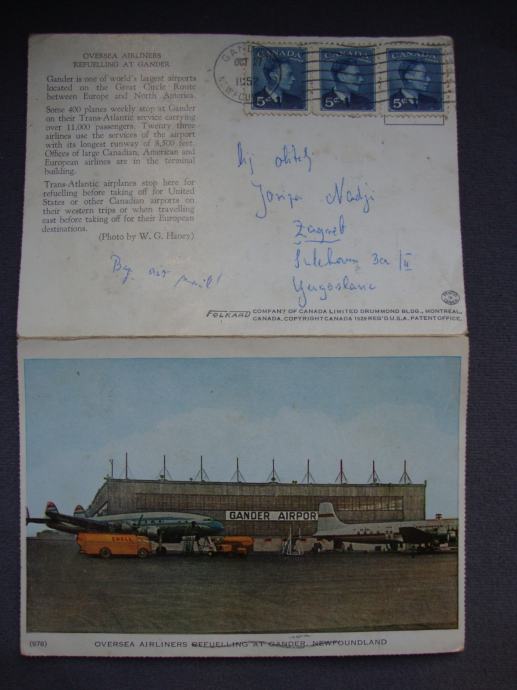 OVERSEA AIRLINERS
REFUELLING AT GANDER
Gander is one of world's largest airports
located on the Great Circle Route
between Europe and North America.
Some 400 planes weekly stop at Gander
on their Trans-Atlantic service carrying
over 11,000 passengers. Twenty three
airlines use the services of the airport
with its longest runway of 8,500 feet.
Offices of large Canadian, American and
European airlines are in the terminal
building.
Trans-Atlantic airplanes stop here for
refuelling before taking off for United
States or other Canadian airports on
their western trips or when travelling
east before taking off for their European
destinations.
(Photo by W. G. Haney)
By air mail!
GAND
OCT
1957
NEWFOU
CANADA CANADA CANADA
5c 5c 5c
Nadji
Zagreb
3a/II
Yugoslavia
FOLKARD COMPANY OF CANADA LIMITED DRUMMOND BLDG., MONTREAL,
CANADA. COPYRIGHT CANADA 1929 REG'D U.S.A. PATENT OFFICE.
GANDER AIRPOR
SHELL
(978) OVERSEA AIRLINERS REFUELLING AT GANDER, NEWFOUNDLAND